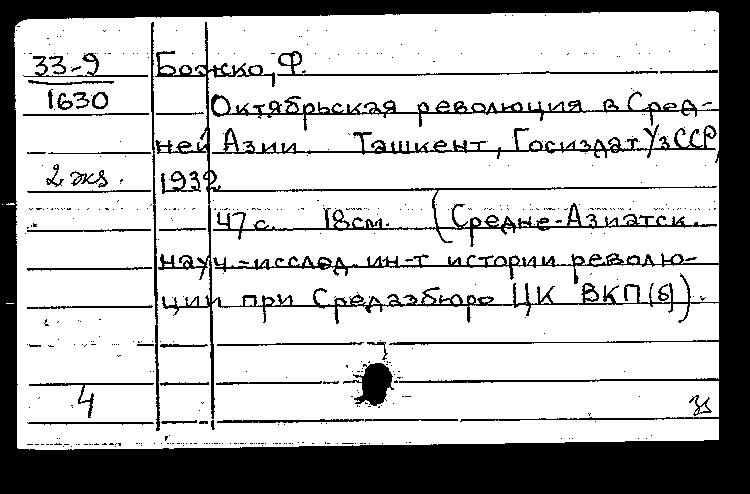 33-9
1630
Божко, Ф.
Октябрьская революция в Сред-
ней Азии. Ташкент, Госиздат УзССР,
2 экз.
1932
47 с. 18 см. (Средне-Азиатск.
науч.-исслед. ин-т истории револю-
ции при Средазбюро ЦК ВКП(б)).
4